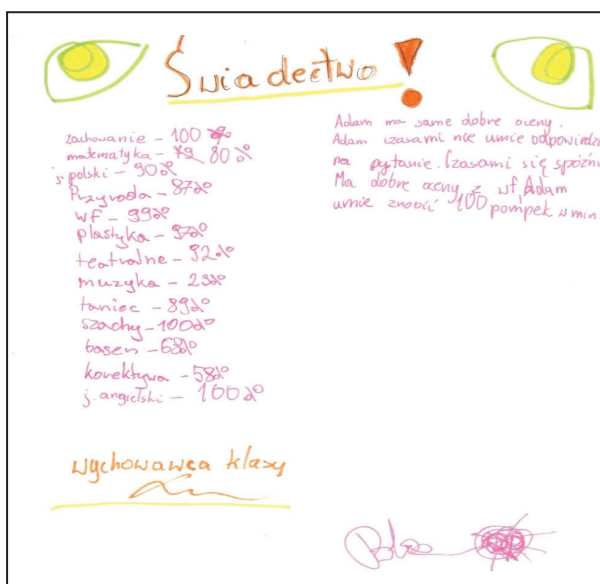 Świadectwo!
zachowanie - 100 %
matematyka - 79 80 %
j. polski - 90%
Przyroda - 87%
wf - 99%
plastyka - 97%
teatralne - 92%
muzyka - 29%
taniec - 89%
szachy - 100%
basen - 68%
korektywa - 58%
j. angielski - 100%
wychowawca klasy
Adam ma same dobre oceny.
Adam czasami nie umie odpowiedzi
na pytanie. Czasami się spóźni
Ma dobre oceny z wf, Adam
umie zrobić 100 pompek w min